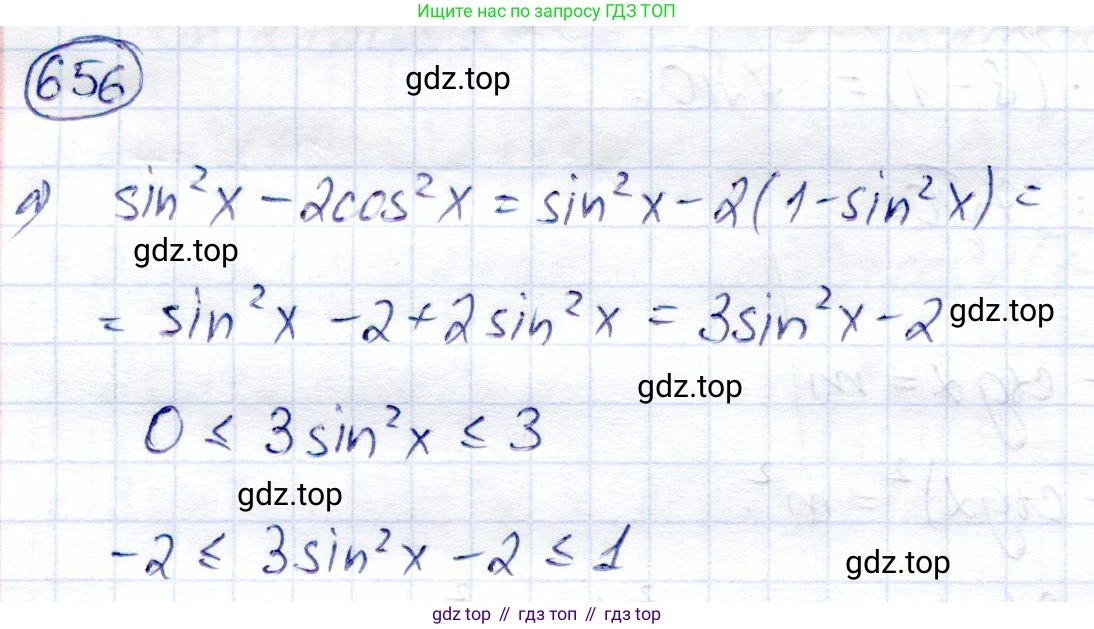 Ищите нас по запросу ГДЗ ТОП
656
gdz.top
а) sin²x - 2cos²x = sin²x - 2(1 - sin²x) =
gdz.top
= sin²x - 2 + 2sin²x = 3sin²x - 2
gdz.top
gdz.top
0 ≤ 3sin²x ≤ 3
gdz.top
-2 ≤ 3sin²x - 2 ≤ 1
gdz.top
gdz top // гдз топ // gdz.top